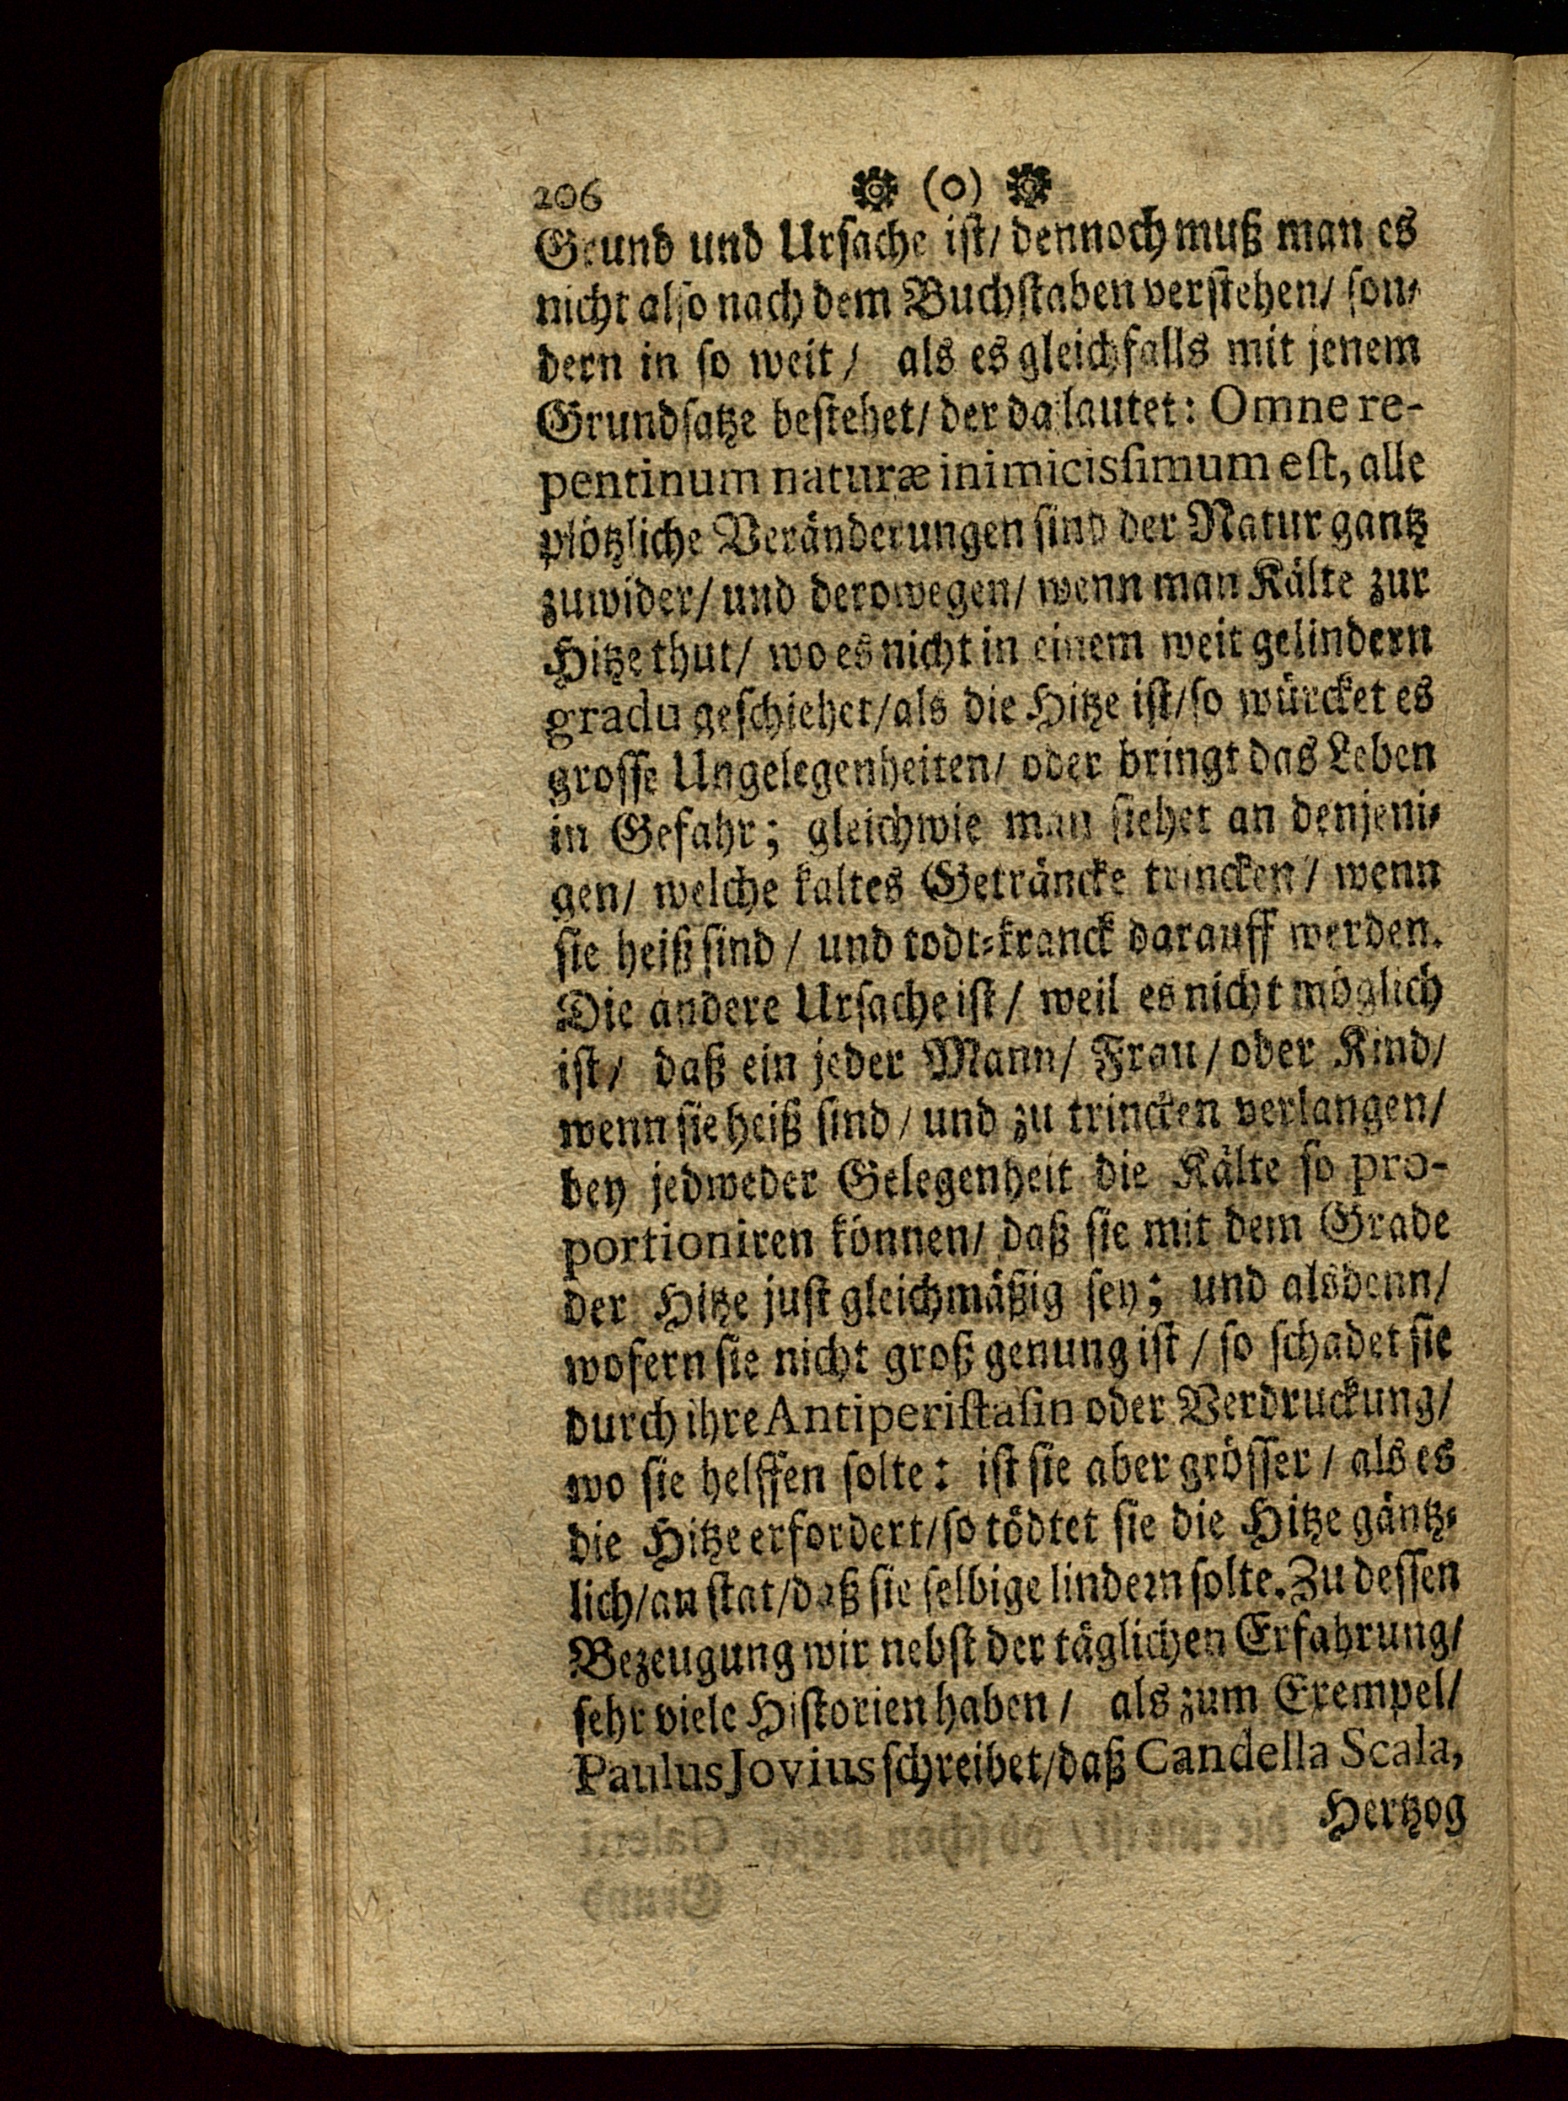 206 (o)
Grund und Ursache ist/ dennoch muß man es
nicht also nach dem Buchstaben verstehen/ son-
dern in so weit/ als es gleichfalls mit jenem
Grundsatze bestehet/ der da lautet: Omne re-
pentinum naturæ inimicissimum est, alle
plötzliche Veränderungen sind der Natur gantz
zuwider/ und derowegen/ wenn man Kälte zur
Hitze thut/ wo es nicht in einem weit gelindern
gradu geschiehet/ als die Hitze ist/ so würcket es
grosse Ungelegenheiten/ oder bringt das Leben
in Gefahr; gleichwie man siehet an denjeni-
gen/ welche kaltes Geträncke trincken/ wenn
sie heiß sind/ und todt-kranck darauff werden.
Die andere Ursache ist/ weil es nicht möglich
ist/ daß ein jeder Mann/ Frau/ oder Kind/
wenn sie heiß sind/ und zu trincken verlangen/
bey jedweder Gelegenheit die Kälte so pro-
portioniren können/ daß sie mit dem Grade
der Hitze just gleichmäßig sey; und alsdenn/
wofern sie nicht groß genung ist/ so schadet sie
durch ihre Antiperistasin oder Verdruckung/
wo sie helffen solte: ist sie aber grösser/ als es
die Hitze erfordert/ so tödtet sie die Hitze gäntz-
lich/ an stat/ daß sie selbige lindern solte. Zu dessen
Bezeugung wir nebst der täglichen Erfahrung/
sehr viele Historien haben/ als zum Exempel/
Paulus Jovius schreibet/ daß Candella Scala,
Hertzog